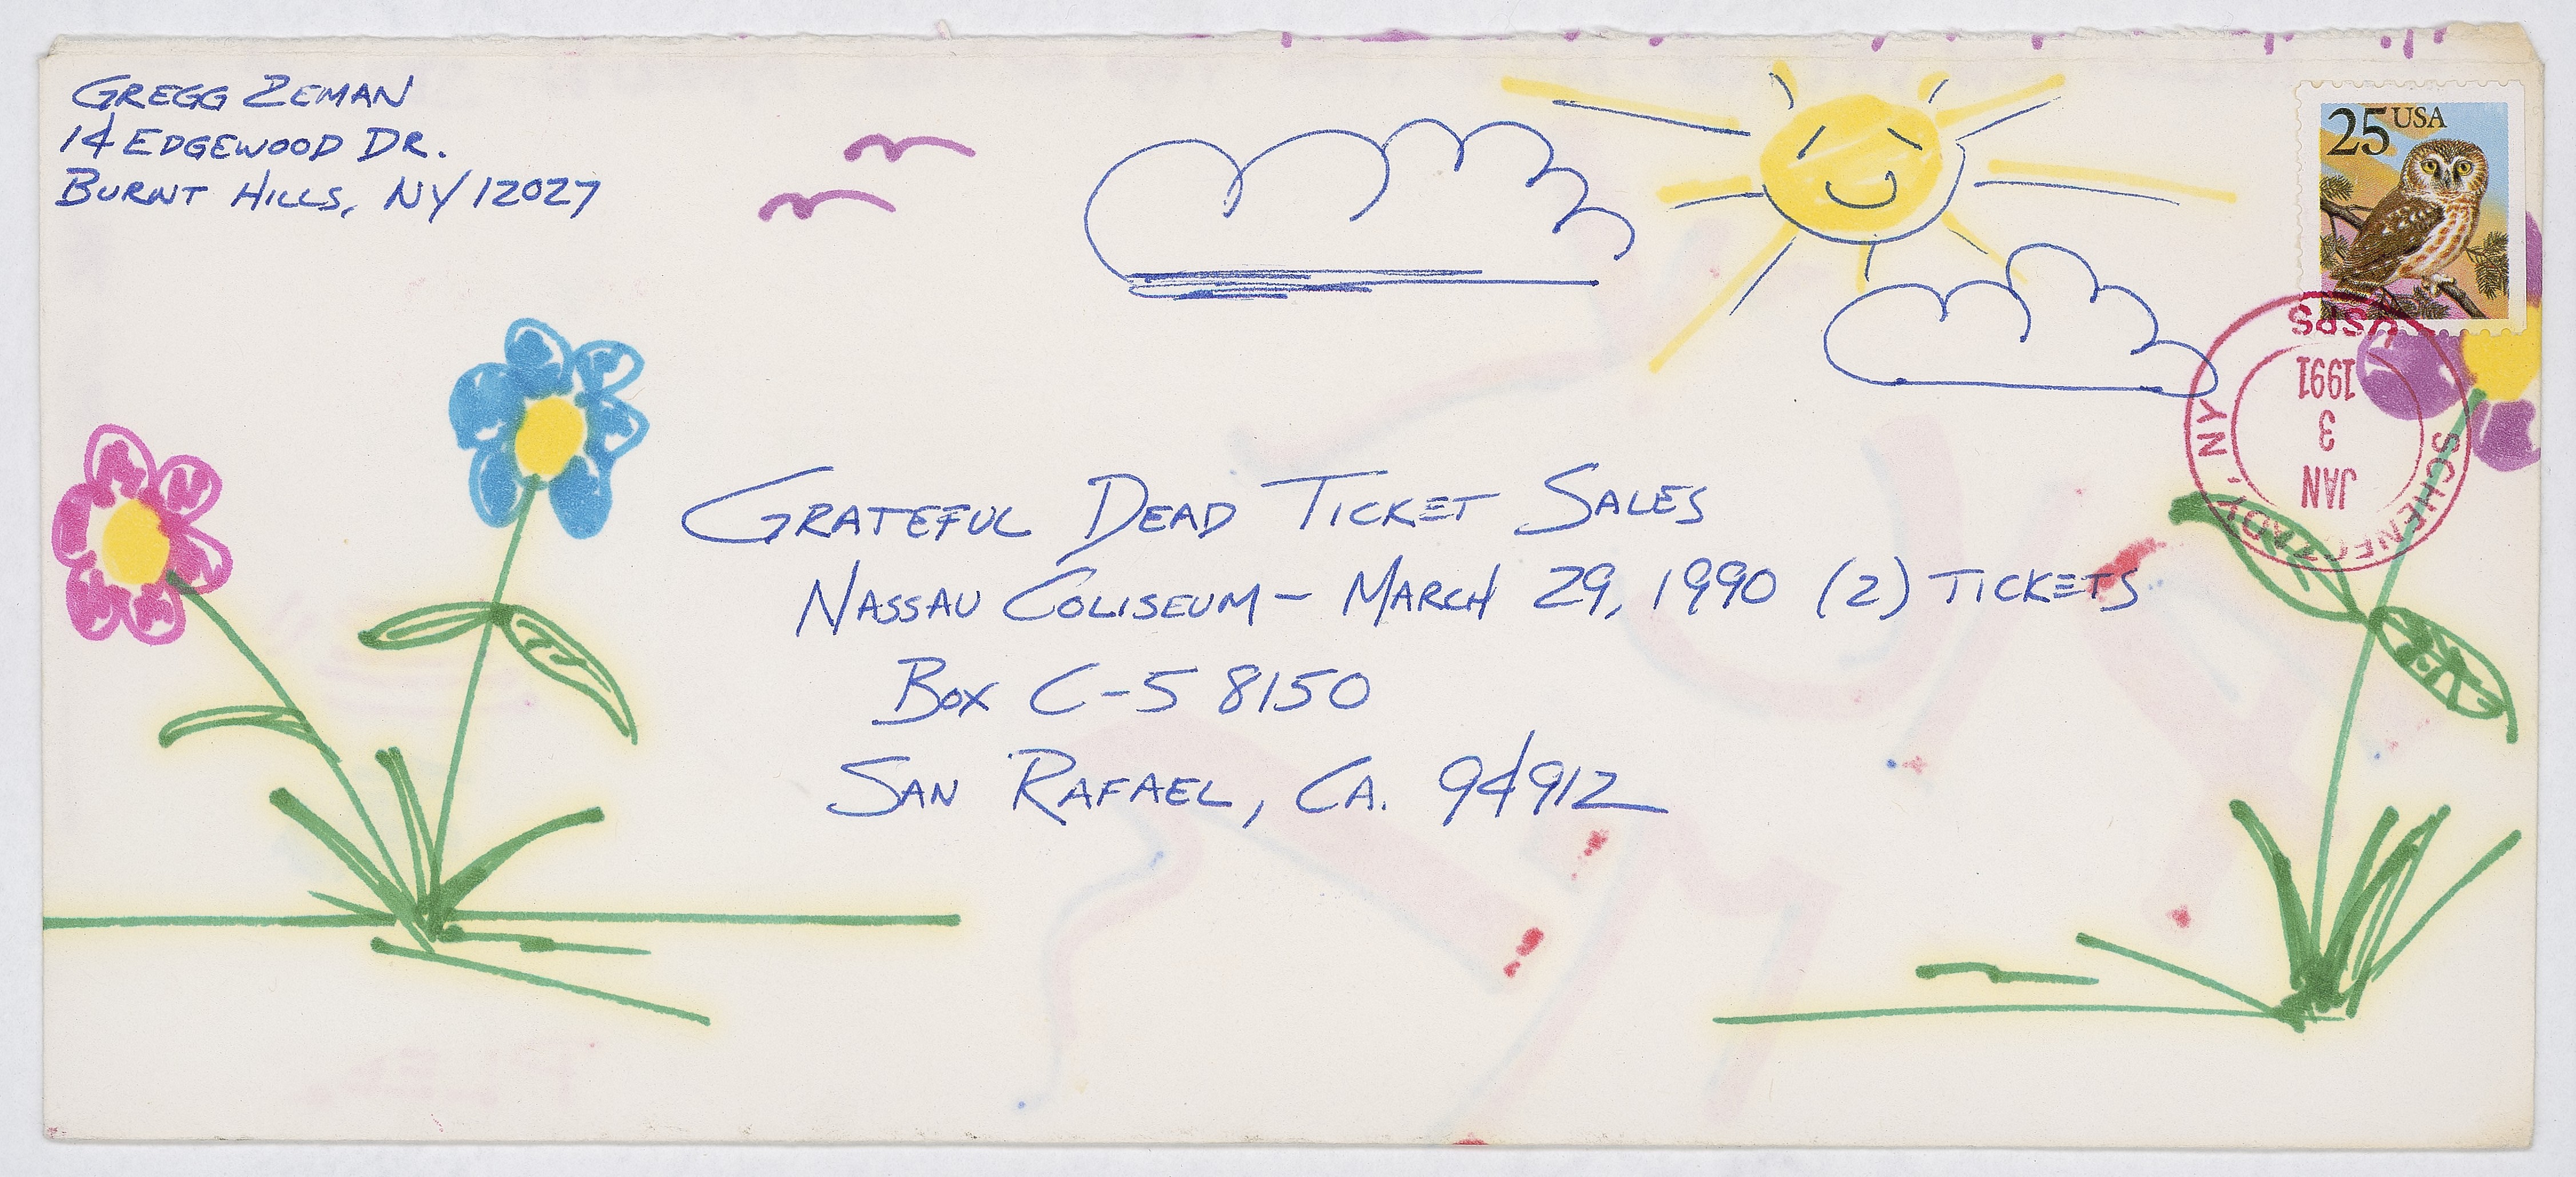 GREGG ZEMAN
14 EDGEWOOD DR.
BURNT HILLS, NY 12027
25 USA
USPS
1991
3
JAN
SCHENECTADY, NY
GRATEFUL DEAD TICKET SALES
NASSAU COLISEUM - MARCH 29, 1990 (2) TICKETS
BOX C-S 8150
SAN RAFAEL, CA. 94912